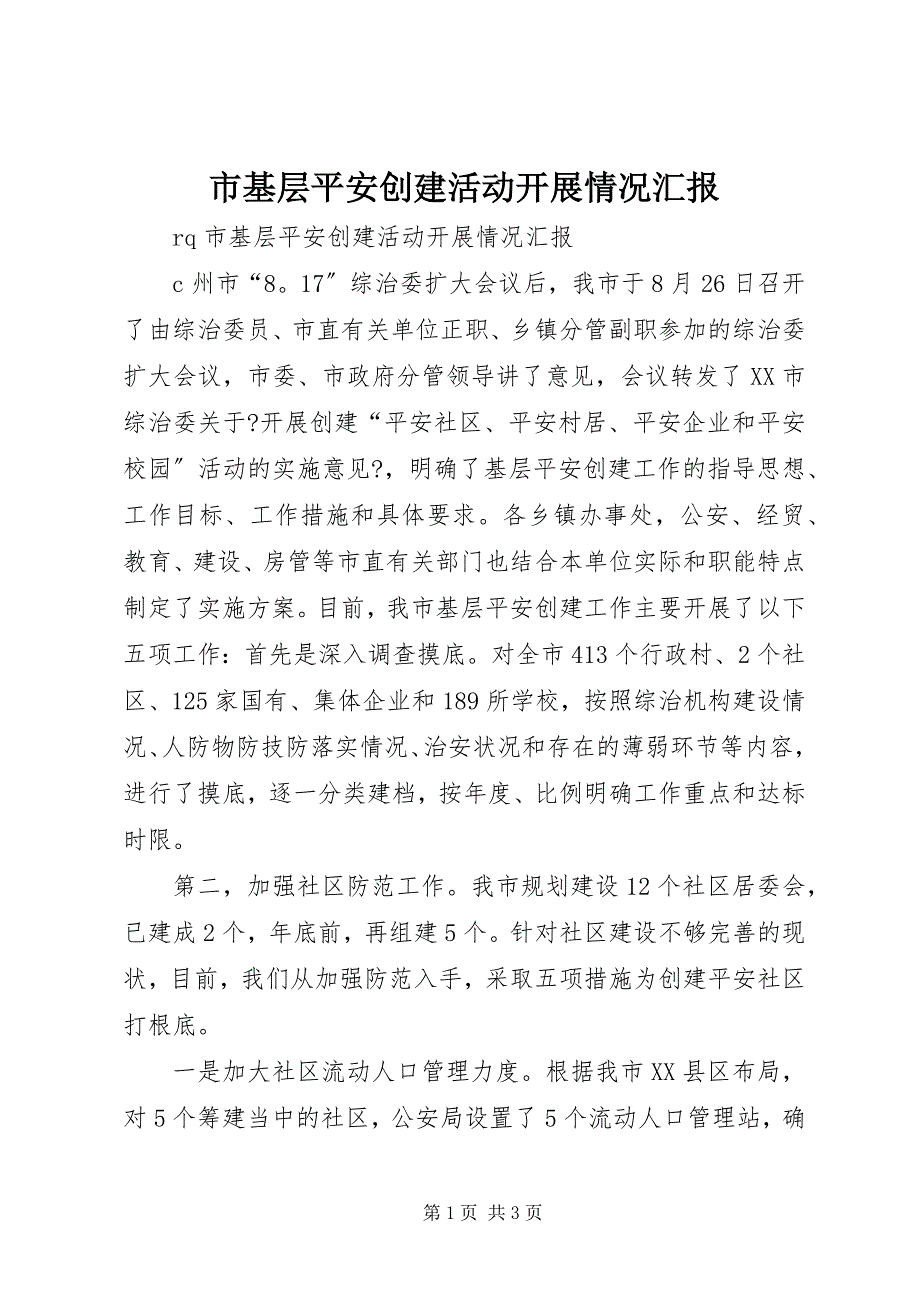 市基层平安创建活动开展情况汇报
rq 市基层平安创建活动开展情况汇报
c 州市“8。17〞综治委扩大会议后，我市于 8 月 26 日召开
了由综治委员、市直有关单位正职、乡镇分管副职参加的综治委
扩大会议，市委、市政府分管领导讲了意见，会议转发了 XX 市
综治委关于?开展创建“平安社区、平安村居、平安企业和平安
校园〞活动的实施意见?，明确了基层平安创建工作的指导思想、
工作目标、工作措施和具体要求。各乡镇办事处，公安、经贸、
教育、建设、房管等市直有关部门也结合本单位实际和职能特点
制定了实施方案。目前，我市基层平安创建工作主要开展了以下
五项工作：首先是深入调查摸底。对全市 413 个行政村、2 个社
区、125 家国有、集体企业和 189 所学校，按照综治机构建设情
况、人防物防技防落实情况、治安状况和存在的薄弱环节等内容，
进行了摸底，逐一分类建档，按年度、比例明确工作重点和达标
时限。
第二，加强社区防范工作。我市规划建设 12 个社区居委会，
已建成 2 个，年底前，再组建 5 个。针对社区建设不够完善的现
状，目前，我们从加强防范入手，采取五项措施为创建平安社区
打根底。
一是加大社区流动人口管理力度。根据我市 XX 县区布局，
对 5 个筹建当中的社区，公安局设置了 5 个流动人口管理站，确
第 1 页 共 3 页